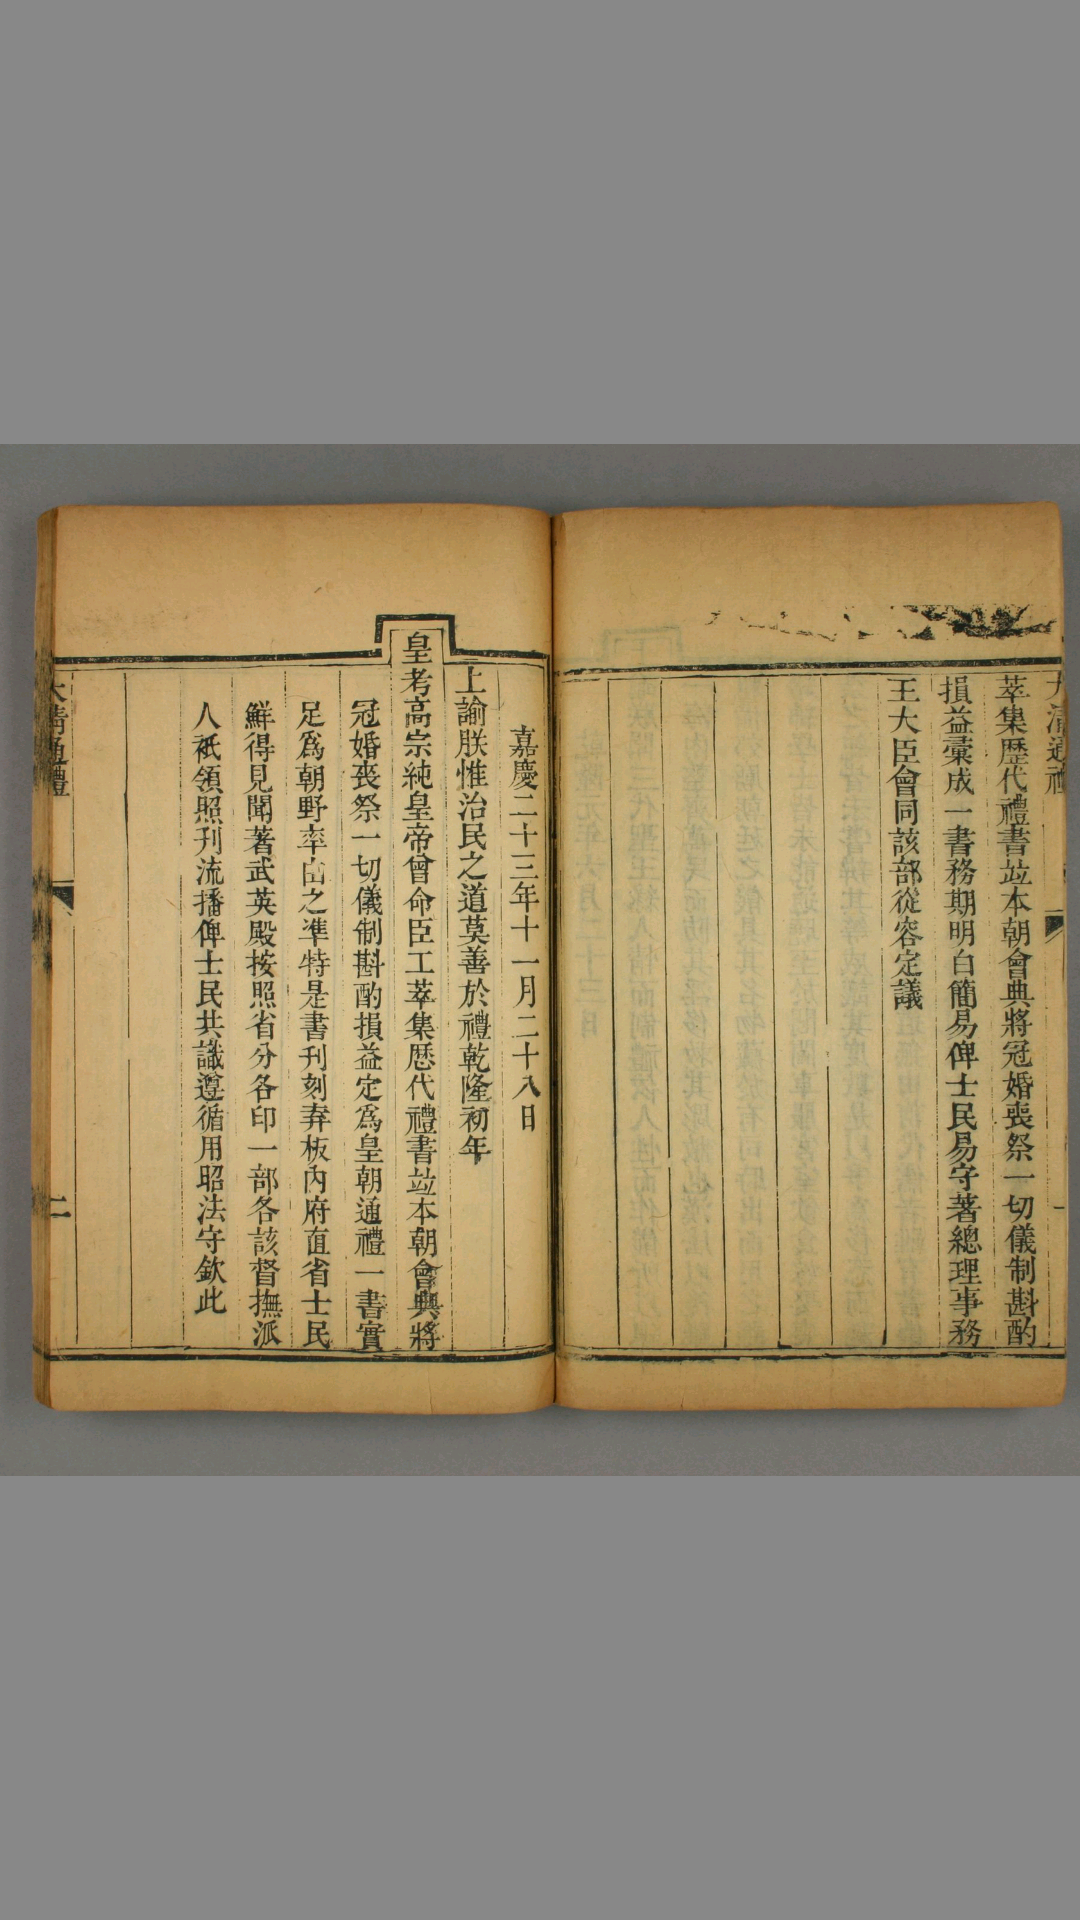 大清通禮
萃集歷代禮書並本朝會典將冠婚喪祭一切儀制斟酌
損益彙成一書務期明白簡易俾士民易守著總理事務
王大臣會同該部從容定議
嘉慶二十三年十一月二十八日
上諭朕惟治民之道莫善於禮乾隆初年
皇考高宗純皇帝曾命臣工萃集歷代禮書並本朝會典將
冠婚喪祭一切儀制斟酌損益定爲皇朝通禮一書實
足爲朝野率由之準特是書刊刻弆板內府直省士民
鮮得見聞著武英殿按照省分各印一部各該督撫派
人祗領照刊流播俾士民共識遵循用昭法守欽此
大清通禮
二